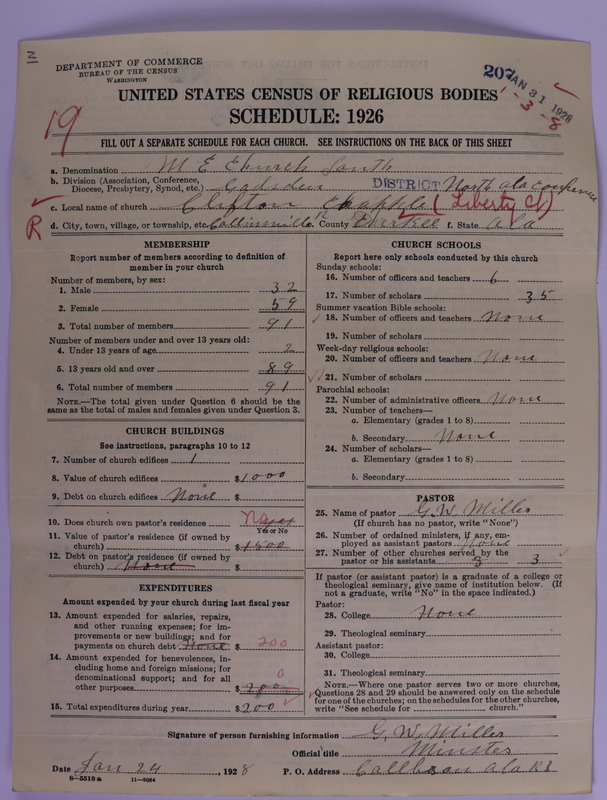 DEPARTMENT OF COMMERCE
BUREAU OF THE CENSUS
WASHINGTON
207 JAN 31 1928
1-3-8
UNITED STATES CENSUS OF RELIGIOUS BODIES
SCHEDULE: 1926
19
FILL OUT A SEPARATE SCHEDULE FOR EACH CHURCH. SEE INSTRUCTIONS ON THE BACK OF THIS SHEET
a. Denomination M E Church South
b. Division (Association, Conference, Diocese, Presbytery, Synod, etc.) Gadsden DISTRICT North Ala Conference
c. Local name of church Clifton Chapple (Liberty Ct)
R
d. City, town, village, or township, etc. Collinsville e. County State Ala
MEMBERSHIP
Report number of members according to definition of
member in your church
Number of members, by sex:
1. Male 32
2. Female 59
3. Total number of members 91
Number of members under and over 13 years old:
4. Under 13 years of age 2
5. 13 years old and over 89
6. Total number of members 91
NOTE.—The total given under Question 6 should be
same as the total of males and females given under Question 3.
CHURCH BUILDINGS
See instructions, paragraphs 10 to 12
7. Number of church edifices 1
8. Value of church edifices $1000
9. Debt on church edifices None $
10. Does church own pastor's residence No yes
Yes or No
11. Value of pastor's residence (if owned by
church) $1500
12. Debt on pastor's residence (if owned by
church) None $
EXPENDITURES
Amount expended by your church during last fiscal year
13. Amount expended for salaries, repairs,
and other running expenses; for im-
provements or new buildings; and for
payments on church debt None $ 200
14. Amount expended for benevolences, in-
cluding home and foreign missions; for
denominational support; and for all
other purposes 0 $200
15. Total expenditures during year $200
CHURCH SCHOOLS
Report here only schools conducted by this church
Sunday schools:
16. Number of officers and teachers 6
17. Number of scholars 35
Summer vacation Bible schools:
18. Number of officers and teachers None
19. Number of scholars
Week-day religious schools:
20. Number of officers and teachers None
21. Number of scholars
Parochial schools:
22. Number of administrative officers None
23. Number of teachers—
a. Elementary (grades 1 to 8)
b. Secondary None
24. Number of scholars—
a. Elementary (grades 1 to 8)
b. Secondary
PASTOR
25. Name of pastor G. W. Miller
(If church has no pastor, write "None")
26. Number of ordained ministers, if any, em-
ployed as assistant pastors None
27. Number of other churches served by the
pastor or his assistants 3 3
If pastor (or assistant pastor) is a graduate of a college or
theological seminary, give name of institution below. (If
not a graduate, write "No" in the space indicated.)
Pastor:
28. College None
29. Theological seminary
Assistant pastor:
30. College
31. Theological seminary
NOTE.—Where one pastor serves two or more churches,
Questions 28 and 29 should be answered only on the schedule
for one of the churches; on the schedules for the other churches,
write "See schedule for church."
Signature of person furnishing information G. W. Miller
Official title Minister
Date Jan 24, 1928 P. O. Address Ala R1
8-5518a 11-9054